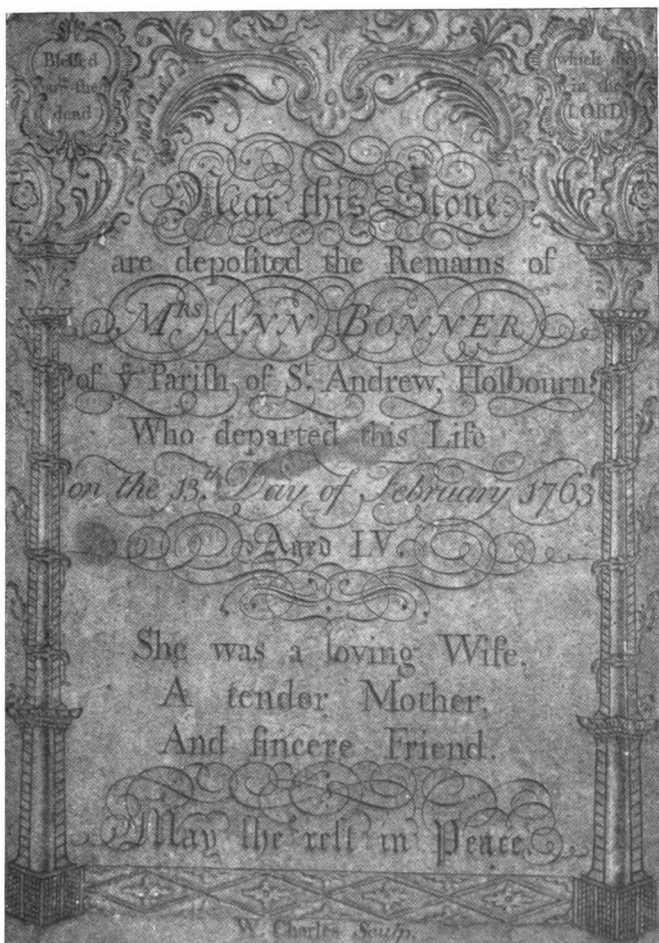 Blessed
are the
dead
which die
in the
LORD
Near this Stone
are deposited the Remains of
Mrs. ANN BONNER
of ye Parish of St. Andrew, Holbourn,
Who departed this Life
on the 13.th Day of February 1763
Aged LV.
She was a loving Wife,
A tender Mother,
And sincere Friend.
May she rest in Peace.
W. Charles Sculp.